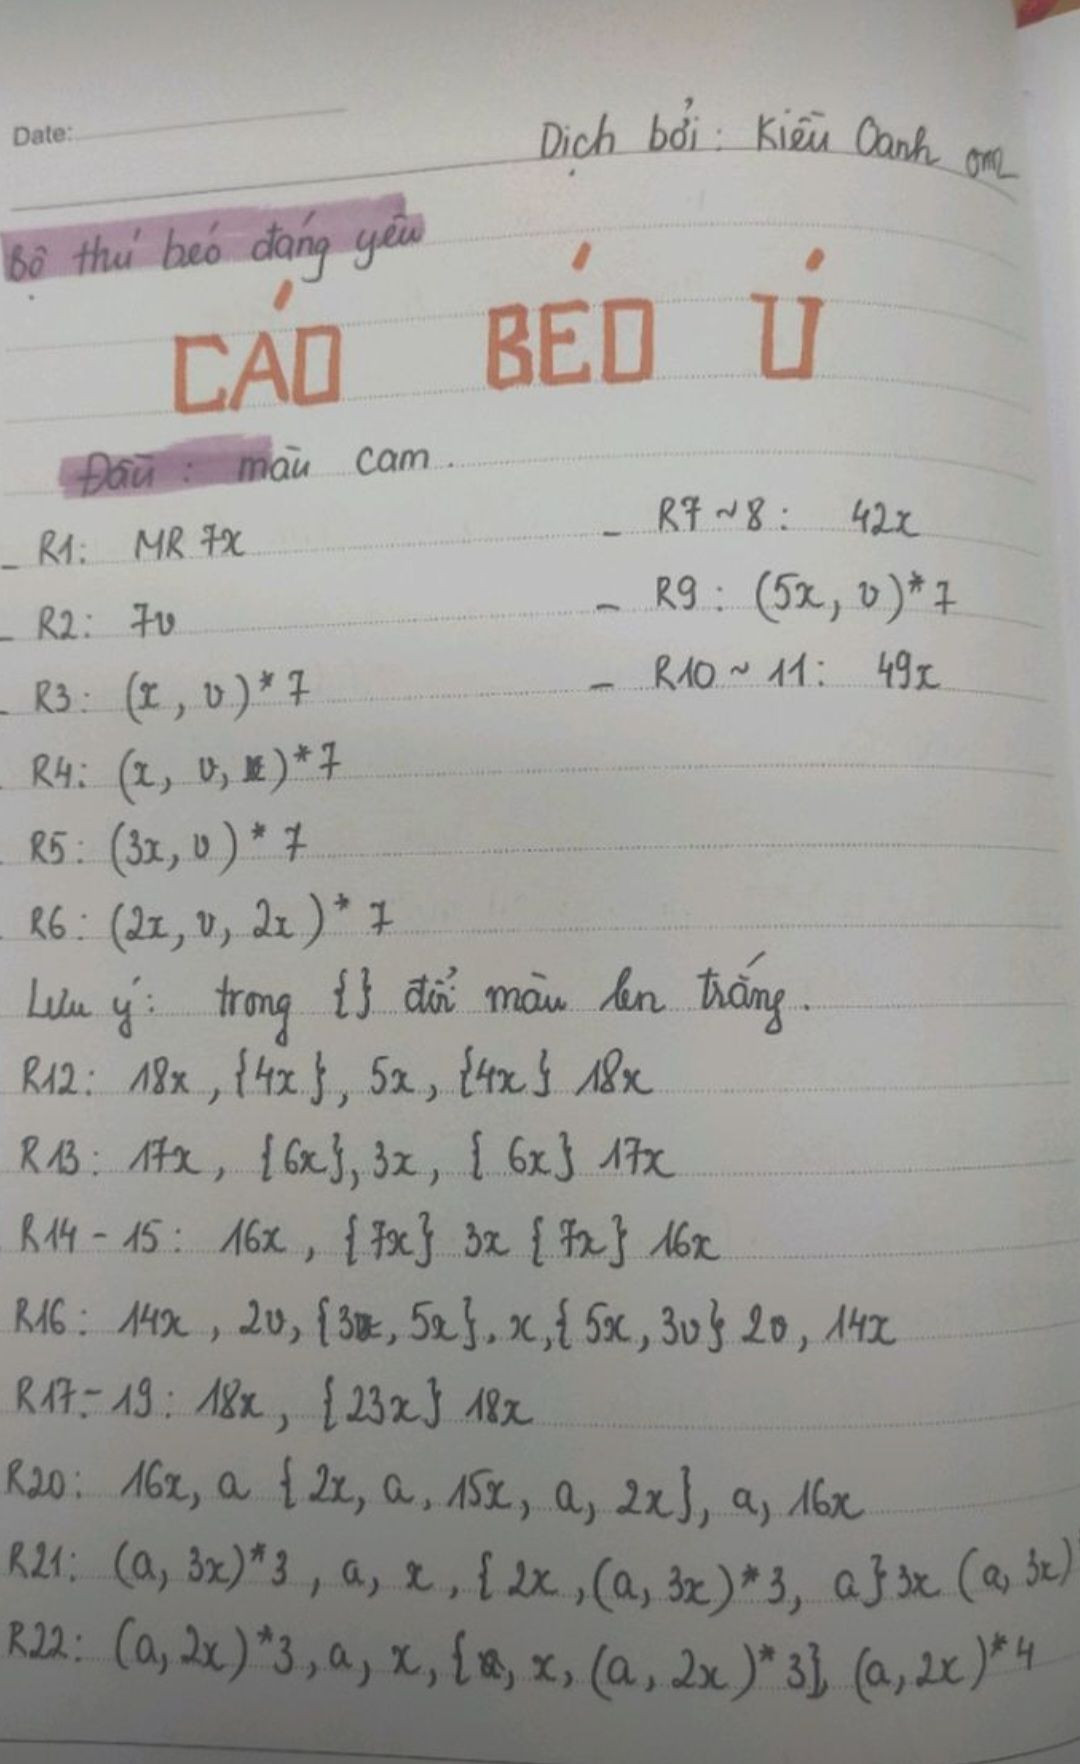 Date:
Dịch bởi: Kiều Oanh
Bộ thú béo đáng yêu
CÁO BÉO Ú
Đầu: màu cam.
_ R1: MR 7x
_ R2: 7v
_ R3: (x, v)*7
R4: (x, v, x)*7
R5: (3x, v)*7
R6: (2x, v, 2x)*7
_ R7~8: 42x
_ R9: (5x, v)*7
_ R10~11: 49x
Lưu ý: trong {} đổi màu len trắng.
R12: 18x, {4x}, 5x, {4x} 18x
R13: 17x, {6x}, 3x, {6x} 17x
R14-15: 16x, {7x} 3x {7x} 16x
R16: 14x, 2v, {3v, 5x}, x, {5x, 3v} 2v, 14x
R17-19: 18x, {23x} 18x
R20: 16x, a {2x, a, 15x, a, 2x}, a, 16x
R21: (a, 3x)*3, a, x, {2x, (a, 3x)*3, a} 3x (a, 3x)
R22: (a, 2x)*3, a, x, { x, (a, 2x)*3}, (a, 2x)*4